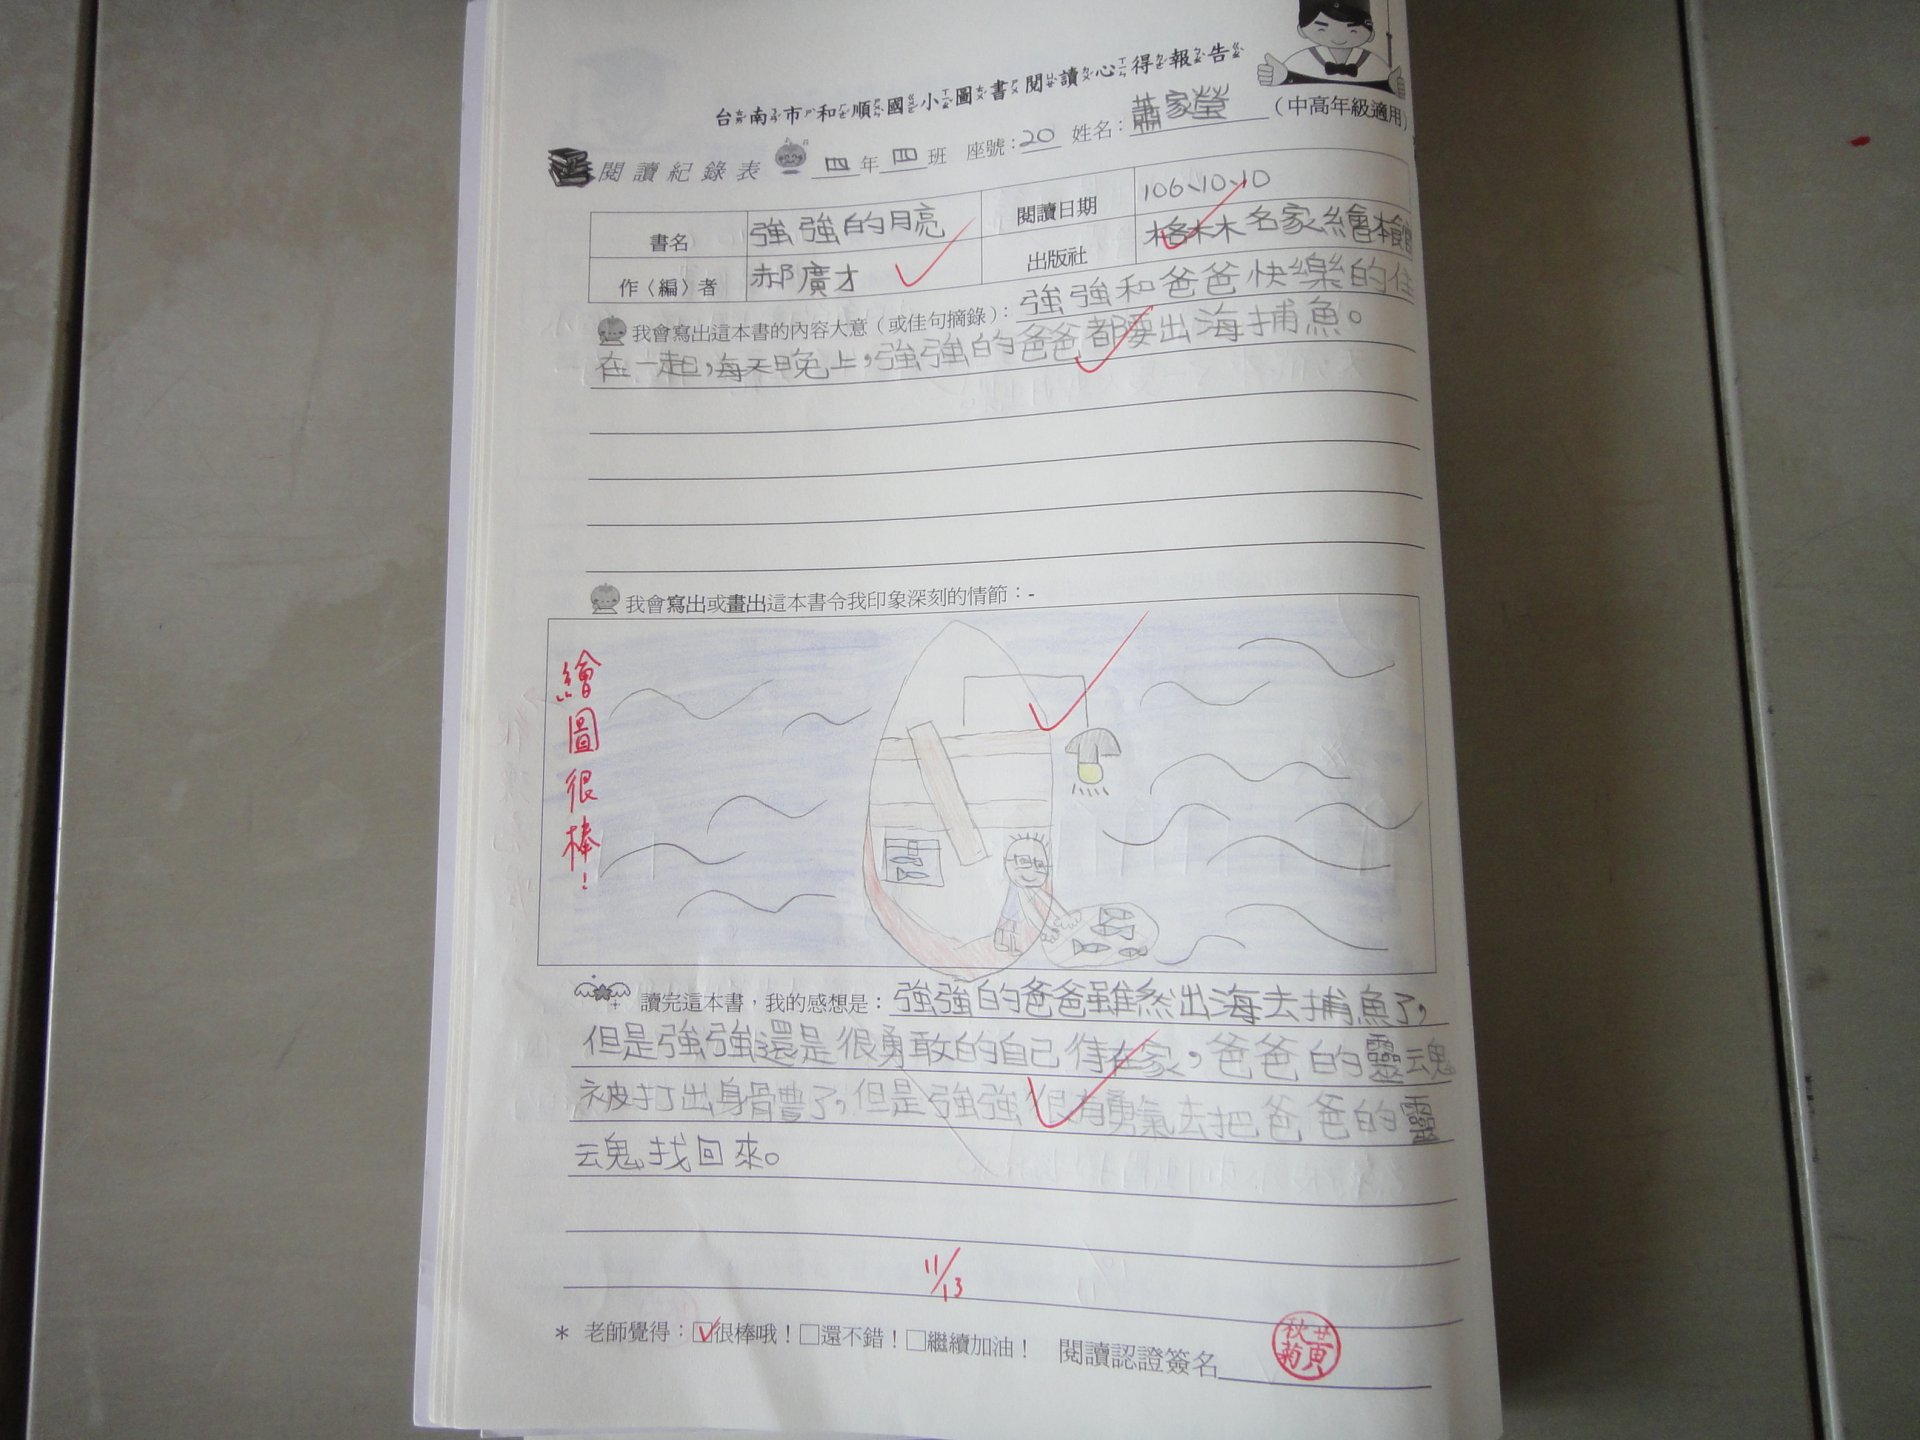 台南市和順國小圖書閱讀心得報告
(中高年級適用)
閱讀紀錄表 四年四班 座號:20 姓名:蕭家瑩
書名 強強的月亮 閱讀日期 106、10、10
作〈編〉者 郝廣才 出版社 格林名家繪本館
我會寫出這本書的內容大意(或佳句摘錄):強強和爸爸快樂的住
在一起,每天晚上,強強的爸爸都要出海捕魚。
我會寫出或畫出這本書令我印象深刻的情節:-
繪圖很棒!
讀完這本書,我的感想是:強強的爸爸雖然出海去捕魚了,
但是強強還是很勇敢的自己待在家,爸爸的靈魂
被打出身體了,但是強強很有勇氣去把爸爸的靈
魂找回來。
11/13
* 老師覺得:☑很棒哦!□還不錯!□繼續加油! 閱讀認證簽名
黃秋菊